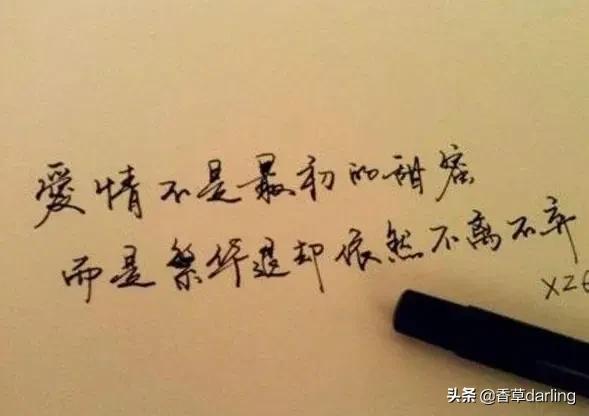 愛情不是最初的甜蜜
而是繁华退却依然不离不弃
头条 @香草darling